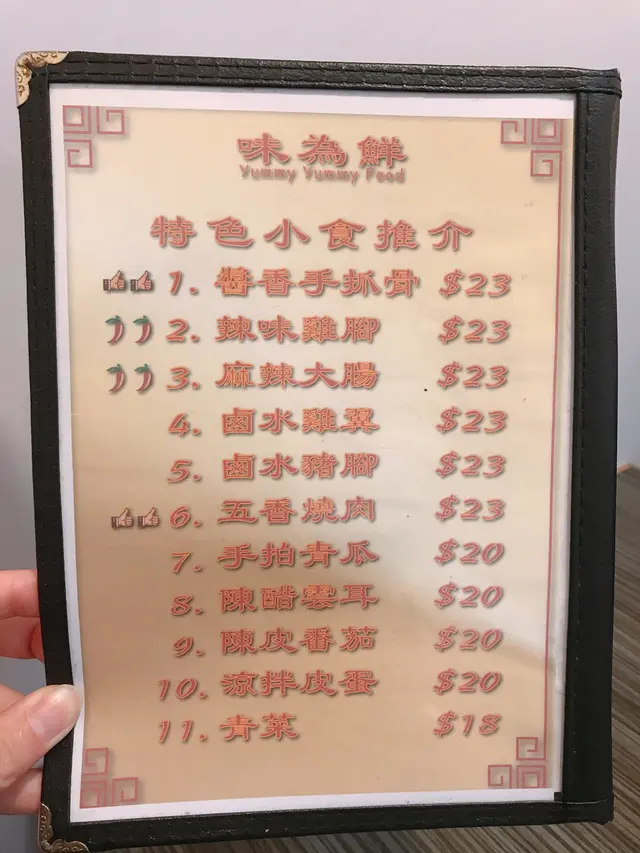 味為鮮
Yummy Yummy Food
特色小食推介
1. 醬香手抓骨 $23
2. 辣味雞腳 $23
3. 麻辣大腸 $23
4. 鹵水雞翼 $23
5. 鹵水豬腳 $23
6. 五香燒肉 $23
7. 手拍青瓜 $20
8. 陳醋雲耳 $20
9. 陳皮番茄 $20
10. 涼拌皮蛋 $20
11. 青菜 $18